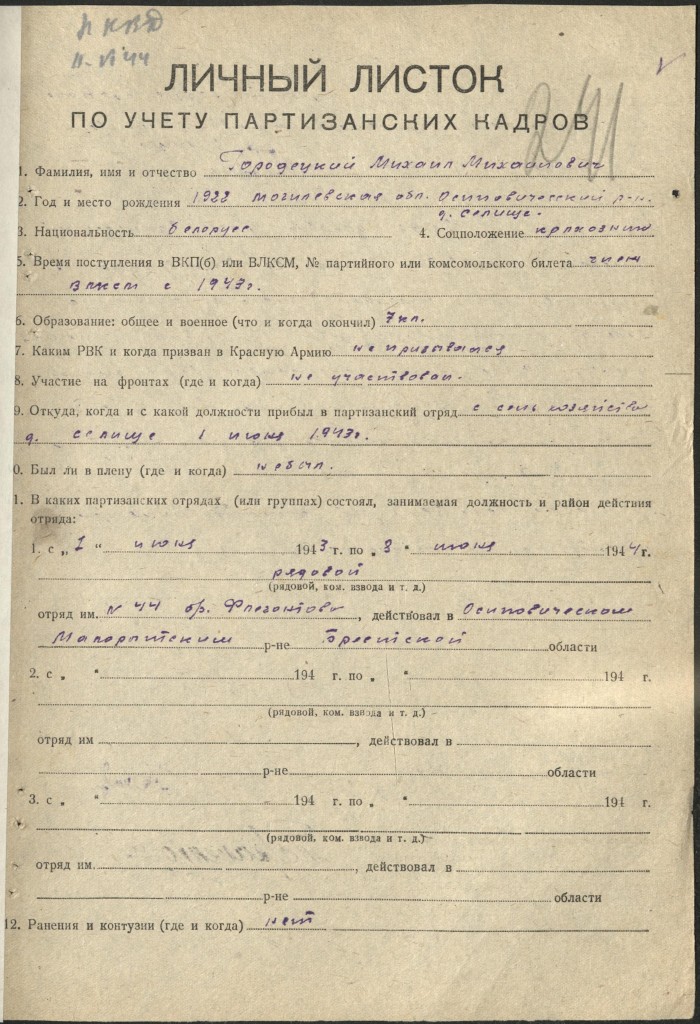 НКВД
11.VI 44
241
ЛИЧНЫЙ ЛИСТОК
ПО УЧЕТУ ПАРТИЗАНСКИХ КАДРОВ
1. Фамилия, имя и отчество Городецкий Михаил Михайлович
2. Год и место рождения 1922 Могилевская обл. Осиповический р-н.
д. Селище.
3. Национальность белорус 4. Соцположение колхозник
5. Время поступления в ВКП(б) или ВЛКСМ, № партийного или комсомольского билета член
ВЛКСМ с 1943 г.
6. Образование: общее и военное (что и когда окончил) 7 кл.
7. Каким РВК и когда призван в Красную Армию не призывался
8. Участие на фронтах (где и когда) не участвовал.
9. Откуда, когда и с какой должности прибыл в партизанский отряд с сель хозяйство
д. селище 1 июня 1943 г.
0. Был ли в плену (где и когда) не был.
1. В каких партизанских отрядах (или группах) состоял, занимаемая должность и район действия
отряда:
1. с „ 1 “ июня 1943 г. по „ 3 “ июня 1944 г.
рядовой
(рядовой, ком. взвода и т. д.)
отряд им. № 44 бр. Флегонтова, действовал в Осиповическом
Малоритским р-не Брестской области
2. с „ “ 194 г. по „ “ 194 г.
(рядовой, ком. взвода и т. д.)
отряд им , действовал в
р-не области
3. с „ “ 194 г. по „ “ 194 г.
(рядовой, ком. взвода и т. д.)
отряд им. , действовал в
р-не области
12. Ранения и контузии (где и когда) нет